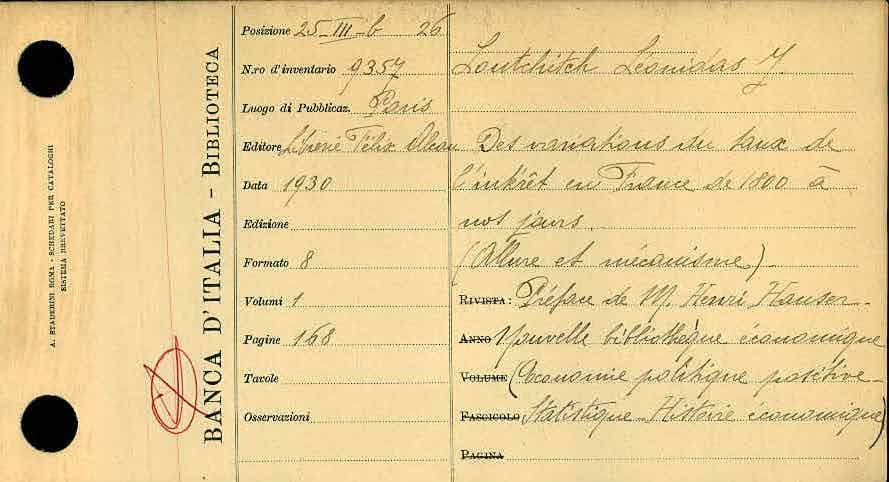 A. STADERINI ROMA - SCHEDARI PER CATALOGHI
SISTEMA BREVETTATO
BANCA D'ITALIA - BIBLIOTECA
Posizione 25-III-b 26
N.ro d'inventario 9357
Luogo di Pubblicaz. Paris
Editore Librerie Félix Alcan
Data 1930
Edizione
Formato 8
Volumi 1
Pagine 168
Tavole
Osservazioni
Loutchitch Léonidas J.
Des variations du taux de
l'intérêt en France de 1800 à
nos jours.
(Allure et mécanisme)
RIVISTA: Préface de M. Henri Hauser.
ANNO Nouvelle bibliothèque économique
VOLUME (Economie politique positive -
FASCICOLO Statistique - Histoire économique)
PAGINA